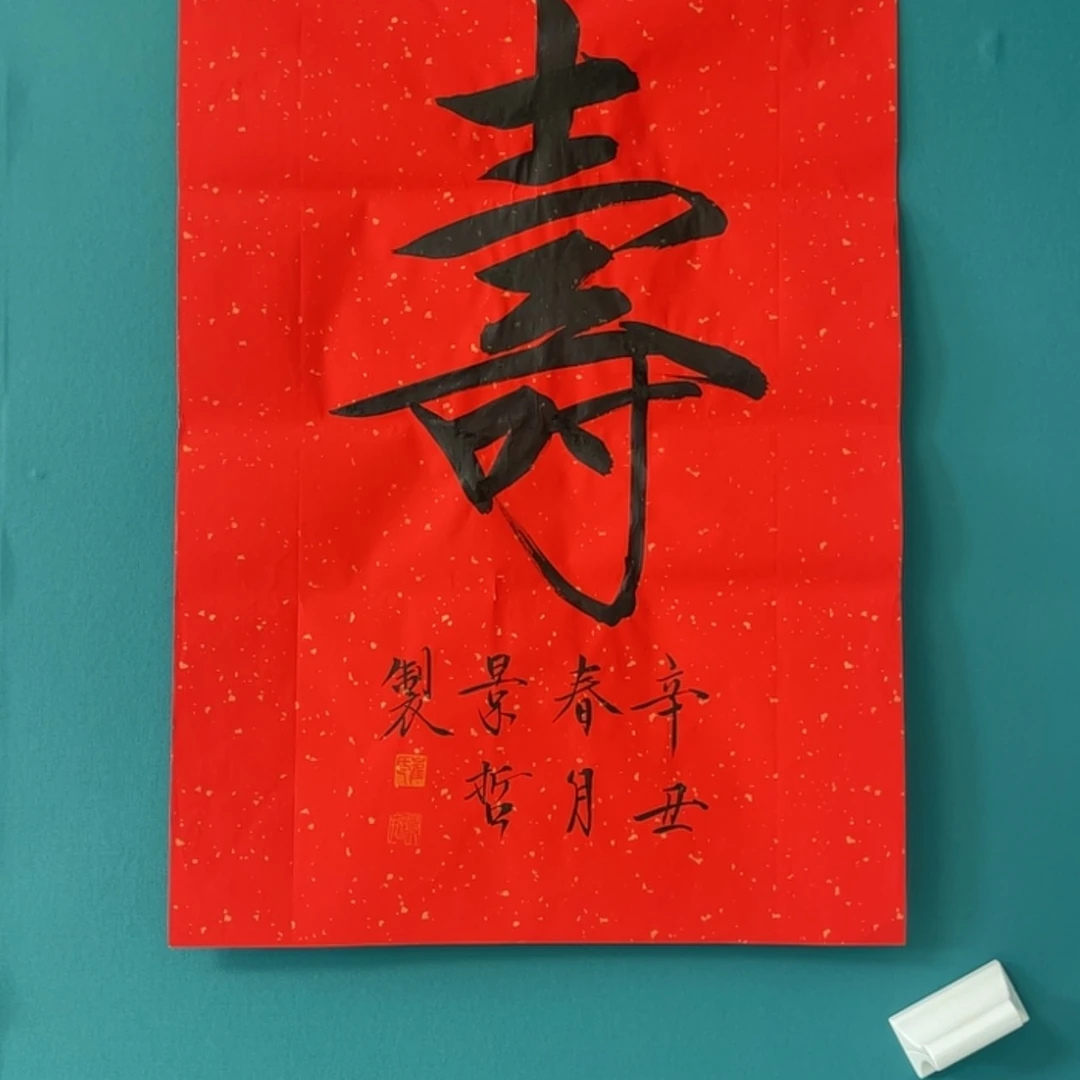 壽
辛丑
春月
景哲
製